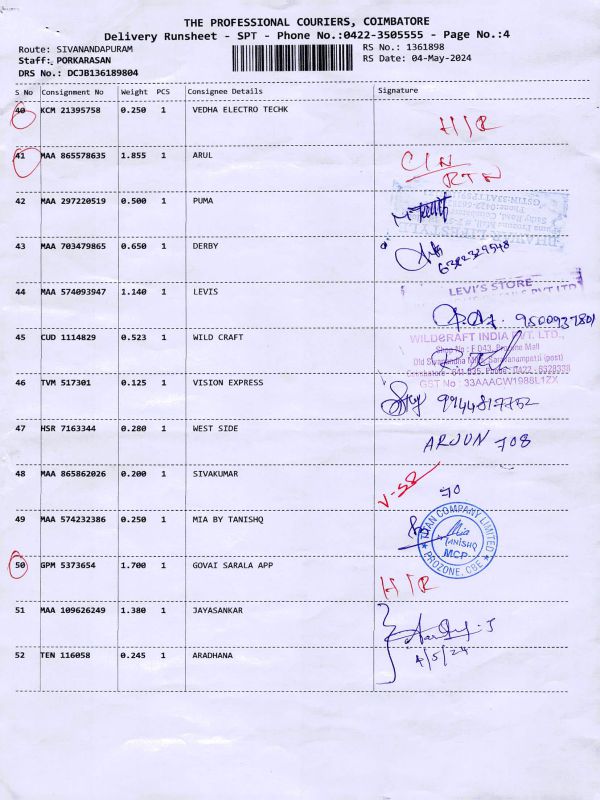 THE PROFESSIONAL COURIERS, COIMBATORE
Delivery Runsheet - SPT - Phone No.:0422-3505555 - Page No.:4
Route: SIVANANDAPURAM
RS No.: 1361898
Staff: PORKARASAN
RS Date: 04-May-2024
DRS No.: DCJB136189804
S No Consignment No Weight PCS Consignee Details Signature
40 KCM 21395758 0.250 1 VEDHA ELECTRO TECHK
H/R
41 MAA 865578635 1.855 1 ARUL
RTN
42 MAA 297220519 0.500 1 PUMA
43 MAA 703479865 0.650 1 DERBY
6382329548
44 MAA 574093947 1.140 1 LEVIS
LEVI'S STORE
9500937801
45 CUD 1114829 0.523 1 WILD CRAFT
WILDCRAFT INDIA PVT. LTD.,
Shop No : F 043, Prozone Mall
GST No : 33AAACW1988L1ZX
46 TVM 517301 0.125 1 VISION EXPRESS
9944817752
47 HSR 7163344 0.280 1 WEST SIDE
ARJUN 708
48 MAA 865862026 0.200 1 SIVAKUMAR
70
49 MAA 574232386 0.250 1 MIA BY TANISHQ
TITAN COMPANY LIMITED
Mia
TANISHQ
MCP
PROZONE, CBE
50 GPM 5373654 1.700 1 GOVAI SARALA APP
H/R
51 MAA 109626249 1.380 1 JAYASANKAR
4/5/24
52 TEN 116058 0.245 1 ARADHANA